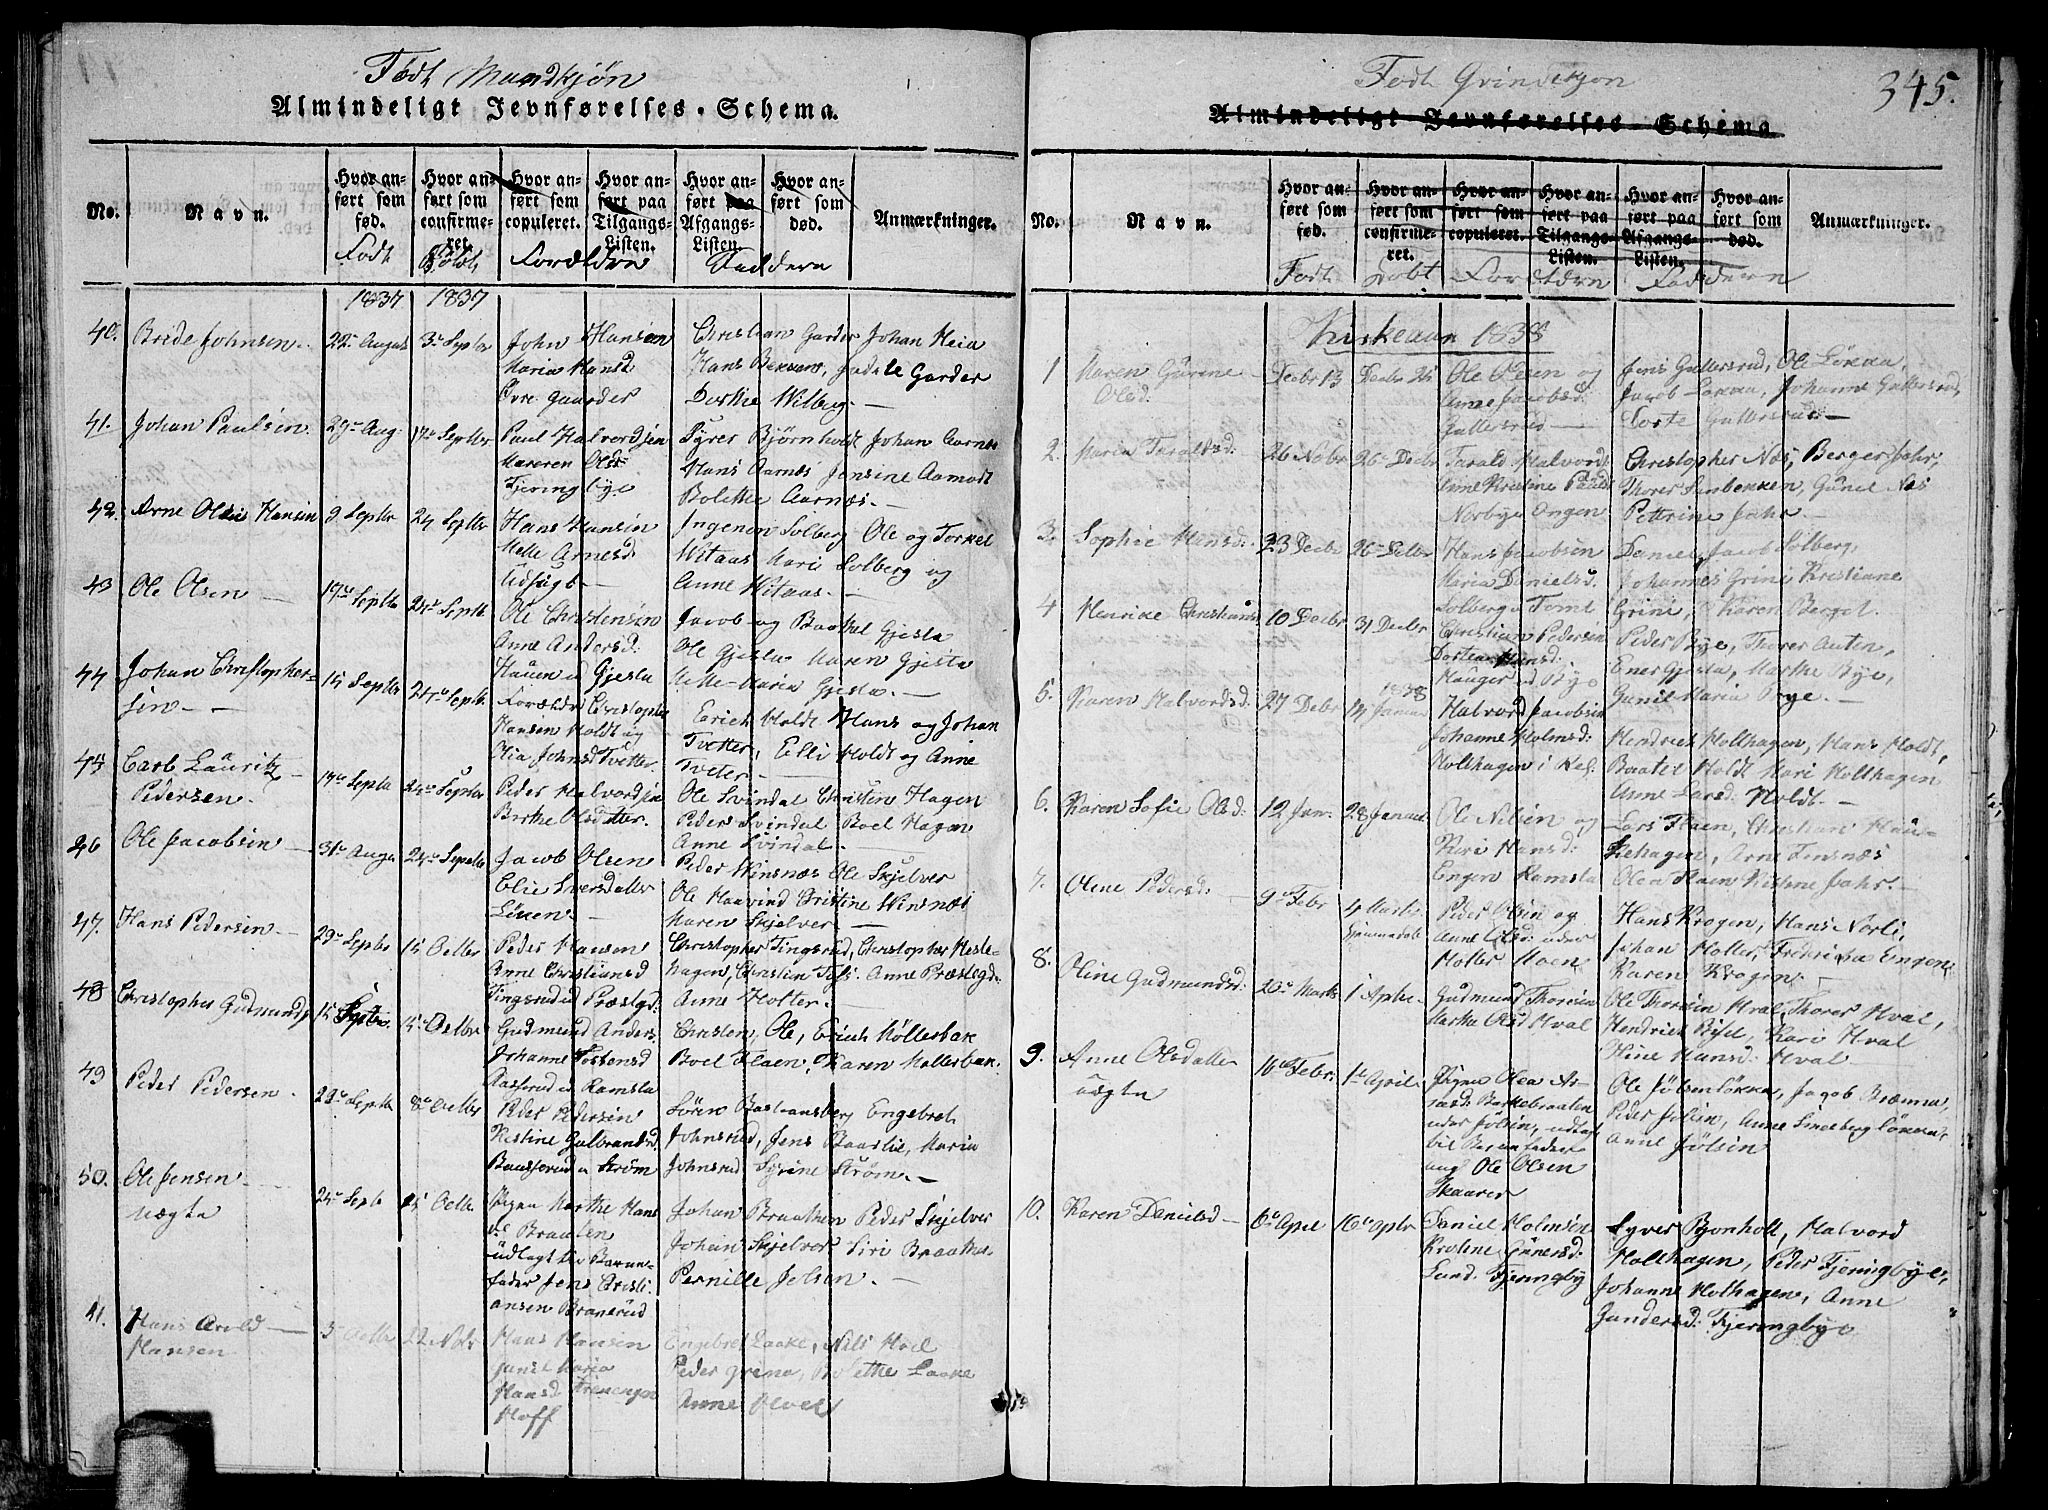 Født Mandkjøn
Almindeligt Jevnførelses-Schema.
No.
Navn.
Hvor anført som fød.
Hvor anført som confirmeret.
Hvor anført som copuleret.
Hvor anført paa Tilgangs-Listen.
Hvor anført paa Afgangs-Listen.
Hvor anført som død.
Anmærkninger.
Født
Døbt
Forældre
Faddere
1837 1837
40. Bride Johnsen 22 August 3 Septbr
John Hansen
Maria Hansd
Øvre Gaarder
Christian Garder Johan Heia
Hans Bekken, Garder
Dorthe Wilberg
41. Johan Paulsen 29 Aug 17 Septbr
Paul Halvordsen
Olsd
Fjeringbye
Syver Bjørnholdt Johan Aarnæs
Hans Aarnæs Jensine Aamodt
Bolethe Aarnæs
42. Arne Hansen 9 Septbr 24 Septbr
Hans Hansen
Mette Arnesd
Ingemon Solberg Ole og Torkel
Witaas Mari Solberg og
Anne Witaas
43 Ole Olsen 17 Septbr 24 Septbr
Ole Christensen
Anne Andersd
Hauen u Gjesta
Jacob og Baathel Gjesta
Ole Gjesta Maren Gjesta
Mette Maria Gjesta
44 Johan Christophersen 15 Septbr 24 Septbr
Forældre Christopher
Hansen Holdt og
Johnsd Tvetter
Erich Holdt Hans og Johan
Tvetter, Elli Holdt og Anne
Tveter
45 Carl Lauritz
Pedersen 17 Septbr 24 Septbr
Peder Halvordsen
Berthe Olsdatter
Ole Svindal Christine Hagen
Peder Svindal Boel Hagen
Anne Svindal
46 Ole Jacobsen 31 Augs 24 Septbr
Jacob Olsen
Elie Iversdatter
Peder Winsnæs Ole Skjelver
Ole Haavind Cristine Winsnæs
Maren Skjelver
47. Hans Pedersen 29 Septbr 15 Octbr
Peder Hansen
Anne Christiansd
Tingsrud u Præstgd
Christopher Tingsrud, Christopher Heslehagen, Christin Anne Præstegd
Anne Holter
48 Christopher Gudmunds 15 Septbr 15 Octbr
Gudmund Anders
Johanne Tostensd
Aasserud u Ramsta
Christen, Ole, Erich Møllerbak
Boel Flaen, Karen Møllerbak
49 Peder Pedersen 22 Septbr 8 Octbr
Peder Pedersen
Kirstine Gulbrandsd
Baasserud u Strøm
Søren Bastiansberg Engebret
Johnsrud, Jens Baarlie, Maria
Johnsrud Strøm
50. Ole Jensen
uægte 24 Septb 15 Octb
Pigen Marthe Hans
d. Braaten
udlagt til Barnefader Jens Christiansen Branerud
Johan Braathen Peder Skjelver
Johan Skjelver Siri Braathen
Pernille Jølsen
41. Hans
Hansen 3 Octbr 22 Nobr
Hans Hansen
Maria
Hansd
Hoff
Engebret Laake, Nils Hoel
Peder Bolethe Laake
Anne Hoel
Født Qvindekjøn 345.
Almindeligt Jevnførelses-Schema.
No.
Navn.
Hvor anført som fød.
Hvor anført som confirmeret.
Hvor anført som copuleret.
Hvor anført paa Tilgangs-Listen.
Hvor anført paa Afgangs-Listen.
Hvor anført som død.
Anmærkninger.
Født Døbt Forældre Faddere
Kirkeaar 1838
1 Maren Gurine
Olsd. Decbr 13 Decbr 25
Ole Olsen og
Anne Jacobsd
Gullersrud
Jens Gullersrud, Ole Løkka,
Jacob Løkka, Johanne Gullersrud,
Dorte Gullersrud
2. Maria Taraldsd. 26 Nobr 26 Decbr
Tarald Halvords
Anne Kristine Paulsd
Norbye Engen
Christopher Næs, Berger Jahr,
Thorer Sanbekken, Gunil Næs
Petterine Jahr
3. Sophie Hansd. 23 Decbr 26 Decbr
Hans Jacobsen
Maria Danielsd.
Solberg u Tomt
Daniel, Jacob Solberg,
Johannes Grini, Kristiane
Grini, Karen Berget.
4 Henrike Christiansd 10 Decbr 31 Decbr
Christian Pedersen
Dortea Hansd.
Hauger ud Bye
Peder Bye, Thorer Auten,
Ener Gjesta, Marthe Bye,
Gunil Maria Bye
5. Karen Halvordsd. 27 Debr 1838 14 Januar
Halvord Jacobsen
Johanne Holmsd.
Holthagen i Rel.
Hendrich Holthagen, Hans Holdt,
Baatel Holdt Mari Holthagen
Anne Larsd. Holdt
6. Karen Sofie Olsd. 12 Jan. 28 Januar
Ole Nilsen og
Kari Hansd.
Engen Ramsta
Lars Flaen, Christian
Arne Finsnæs
Olea Flaen Kristine Jahr
7. Oline Pedersd. 9 Febr 4 Marts
hjemmedøbt
Peder Olsen og
Anne Olsd. under
Holter Moen
Hans Krogen, Hans Norli,
Johan Holter, Frederikke Engen
Karen Krogen
8. Oline Gudmundsd. 20 Marts 1 April
Gudmund Thoresen
Marthe Olsd Hval
Ole Thoresen Hval, Thorer Hval,
Hendrich Kari Hval
Hansd. Hval
9. Anne Olsdatter
uægte 16 Febr. 1 April
Pigen Olea
Barkebraaten
under Jølsen, udlagt
til Barnefader
ung. Ole Olsen
Skaarer
Ole Jølsenløkka, Jacob Brænna,
Peder Jølsen, Anne Løkken,
Anne Jølsen
10. Karen Danielsd 6 April 16 April
Daniel Holmsen
Karoline Gunersd.
Lund. Fjeringby
Syver Bjønholt, Halvord
Holthagen, Peder Fjeringbye,
Johanne Holthagen, Anne
Gundersd: Fjeringbye